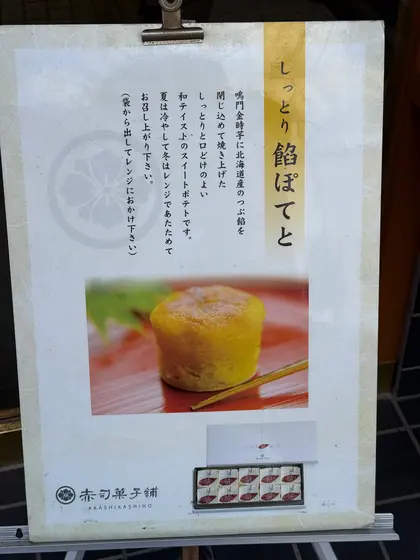 しっとり 餡ぽてと
鳴門金時芋に北海道産のつぶ餡を
閉じ込めて焼き上げた
しっとりと口どけのよい
和テイストのスイートポテトです。
夏は冷やして冬はレンジであたためて
お召し上がり下さい。
(袋から出してレンジにおかけ下さい)
赤司菓子舗
AKASHIKASHIHO